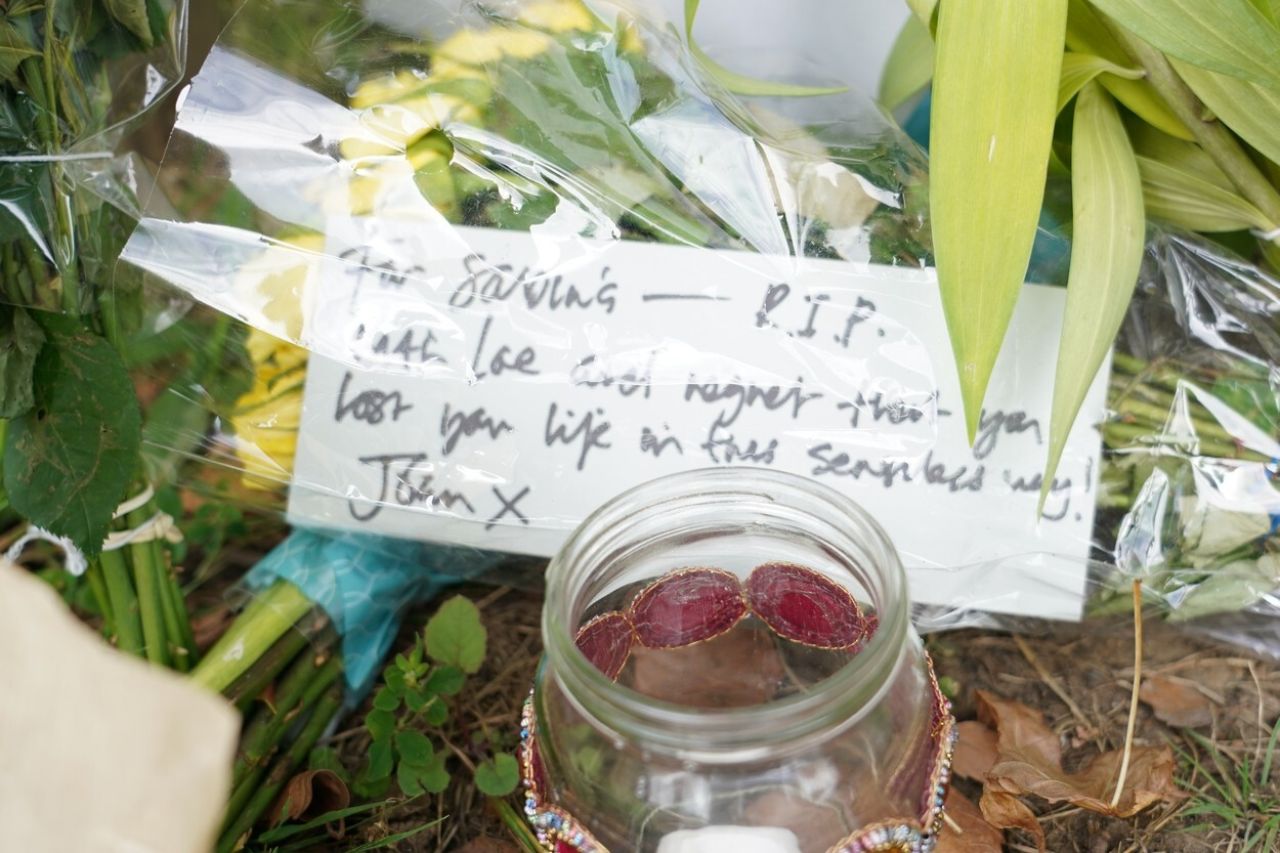 For Sabina — R.I.P.
love and regret that you
lost your life in this senseless way!
Joan X